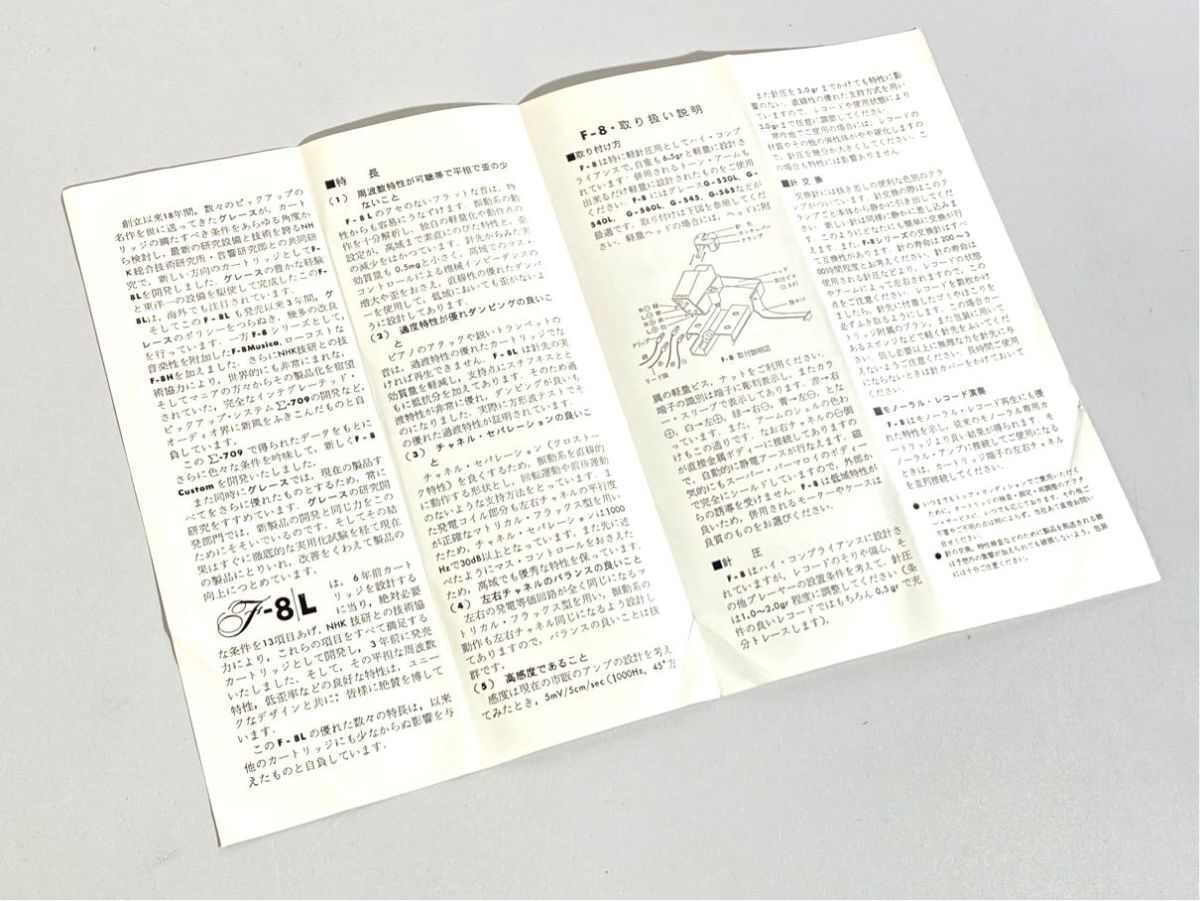 創立以来18年間，数々のピックアップの
名作を世に送ってきたグレースが，カート
リッジの満たすべき条件をあらゆる角度か
ら検討し，最新の研究設備と技術を誇るNH
K総合技術研究所・音響研究部との共同研
究で，新しい方向のカートリッジとしてF-
8Lを開発しました．グレースの豊かな経験
と東洋一の設備を駆使して完成したこのF-
8Lは，海外でも注目されています．
そしてこのF-8Lも発売以来3年間，グ
レースのポリシーをつらぬき，幾多の改良
を行っています．一方F-8シリーズとして，
音楽性を附加したF-8Musica，ローコストな
F-8Hを加えました．さらにNHK技研との技
術協力により，世界的にも非常にまれな，
そしてマニアの方々からその製品化を宿望
されていた，完全なインテグレーテッド・
ピックアップ・システムΣ-709の開発など，
オーディオ界に新風をふきこんだものと自
負しています．
このΣ-709で得られたデータをもとに
さらに色々な条件を吟味して，新しくF-8
Customを開発いたしました．
また同時にグレースでは，現在の製品す
べてをさらに優れたものとするため，常に
研究をすすめています．グレースの研究開
発部門では，新製品の開発と同じ力をこの
ためにそそいでいるのです．そしてその結
果はすぐに徹底的な実用化試験を経て現在
の製品にとりいれ，改善をくわえて製品の
向上につとめています．
F-8/L は，6年前カート
リッジを設計する
に当り，絶対必要
な条件を13項目あげ，NHK技研との技術協
力により，これらの項目をすべて満足する
カートリッジとして開発し，3年前に発売
いたしました．そして，その平坦な周波数
特性，低歪率などの良好な特性は，ユニー
クなデザインと共に，皆様に絶賛を博して
います．
このF-8Lの優れた数々の特長は，以来
他のカートリッジにも少なからぬ影響を与
えたものと自負しています．
■特 長
(1) 周波数特性が可聴帯で平担で歪の少
ないこと
F-8Lのクセのないフラットな音は，特
性からも容易にうなずけます．振動系の動
作を十分解析し，独自の軽量化や動作点の
設定が，高域まで素直にのびた特性と，歪
の減少をはかっています．針先からみた実
効質量も0.5mgと小さく，高域でのマス・
コントロールによる機械インピーダンスの
増大や歪をおさえ，直線性の優れたダンパ
ーを使用して，低域においても歪がないよ
うに設計してあります．
(2) 過度特性が優れダンピングの良いこ
と
ピアノのアタックや鋭いトランペットの
音は，過渡特性の優れたカートリッジでな
ければ再生できません．F-8Lは針先の実
効質量を軽減し，支持点にスチフネスとと
もに抵抗分を加えてあります．そのため過
渡特性が非常に優れ，ダンピングが良いも
のになりました．実際に方形波テストでそ
の優れた過渡特性が証明されています．
(3) チャネル・セパレーションの良いこ
と
チャネル・セパレーション（クロストー
ク特性）を良くするため，振動系を直線的
に動作する形状とし，回転運動や前後運動
のないような支持方法をとっています．ま
た発電コイル部分も左右チャネルの平行度
が正確なマトリカル・フラックス型を用い
たため，チャネル・セパレーションは1000
Hzで30dB以上となっています．また先に述
べたようにマス・コントロールをおさえた
ため，高域でも優秀な特性を保っています．
(4) 左右チャネルのバランスの良いこと
左右の発電等価回路が全く同じになるマ
トリカル・フラックス型を用い，振動系の
動作も左右チャネル同じになるよう設計し
てありますので，バランスの良いことは抜
群です．
(5) 高感度であること
感度は現在の市販のアンプの設計を考え
てみたとき，5mV/5cm/sec（1000Hz，45°方
F-8・取り扱い説明
■取り付け方
F-8は特に軽針圧用としてハイ・コンプ
ライアンスで，自重も6.5grと軽量に設計さ
れています．併用されるトーン・アームも
出来るだけ軽量に設計されたものをご使用
ください．F-8にはグレースG-520L，G-
540L，G-560L，G-545，G-565などが
最適です．取り付けは下図を参照してくだ
さい．軽量ヘッドの場合には，ヘッドに附
針先
カンチレバー
クランプ
ヘッド
指かけ
リード線
F-8 取付説明図
属の軽量ビス，ナットをご利用ください．
端子の識別は端子に彫刻表示し，またカラ
ー・スリーブで表示してあります．赤→右
⊕，白→左⊕，緑→右⊖，青→左⊖，とな
っています．また，アームのシェルの色わ
けもこの通りです．なお右チャネルの⊖側
が直接金属ボディーに接続してありますの
で，自動的に静電アースが行なえます．磁
気的にもスーパー・パーマロイのボディー
で完全にシールドしていますので，外部か
らの誘導を受けません．F-8は低域特性が
良いため，併用されるモーターやケースは
良質のものをお選びください．
■針 圧
F-8はハイ・コンプライアンスに設計さ
れていますが，レコードのそりや偏心，そ
の他プレーヤーの設置条件を考えて，針圧
は1.0〜2.0gr程度に調整してください（条
件の良いレコードではもちろん0.5grで充
分トレースします）．
また針圧を3.0grまでかけても特性に影
響のない，直線性の優れた支持方式を用い
ていますので，レコードや使用状態により
3.0grまで任意に調節してください．
寒冷地でご使用の場合には，レコードの
材質やその他の弾性体がやや硬化しますの
で，針圧を幾分か大きくしてください．こ
の場合も特性には影響ありません．
■針交換
交換針には抜き差しの便利な色別のクラ
ンプがついています．針交換の際はこのク
ランプごと本体から静かに引き出してくだ
さい．新しい針は同様に静かに差し込みま
す．このようにどなたにも簡単に交換が行
えます．また，F-8シリーズの交換針はすべ
て互換性があります．針の寿命は200〜3
00時間程度とお考えください．針の寿命は
使用される針圧などや，レコードの状態
やアームによって左右されますので，この
点をご注意ください．レコードを数枚かけ
ましたら，針先に付着したゴミやほこりを
必ずふき取るようにします．この場合カー
トリッジ附属のブラシ，また包装に用いて
あるスポンジなどで軽く針先をふいてくだ
さい．但し必要以上に無理な力を針先に与
えないようご注意ください．長時間ご使用
にならないときは針カバーをかけておいて
ください．
■モノーラル・レコード演奏
F-8はモノーラル・レコード再生にも優
れた特性を示し，従来のモノーラル専用カ
ートリッジより良い結果が得られます．モ
ノーラル・アンプに接続してご使用になる
ときは，カートリッジ端子の左右チャネル
を並列接続してください．
●いつまでもトップ・コンディションでご愛用いただく
ために，カートリッジの検査・調定・再調整のアフタ
ー・サービスは，いつでも応じております．その他ご
不審やご不明の点は何によらず，当社あて直接お問い
合せください．
●針の交換，特性検査などのために製品を郵送される際
は予想外の衝撃が加えられても破損しないよう，包装
には十分ご注意ください．